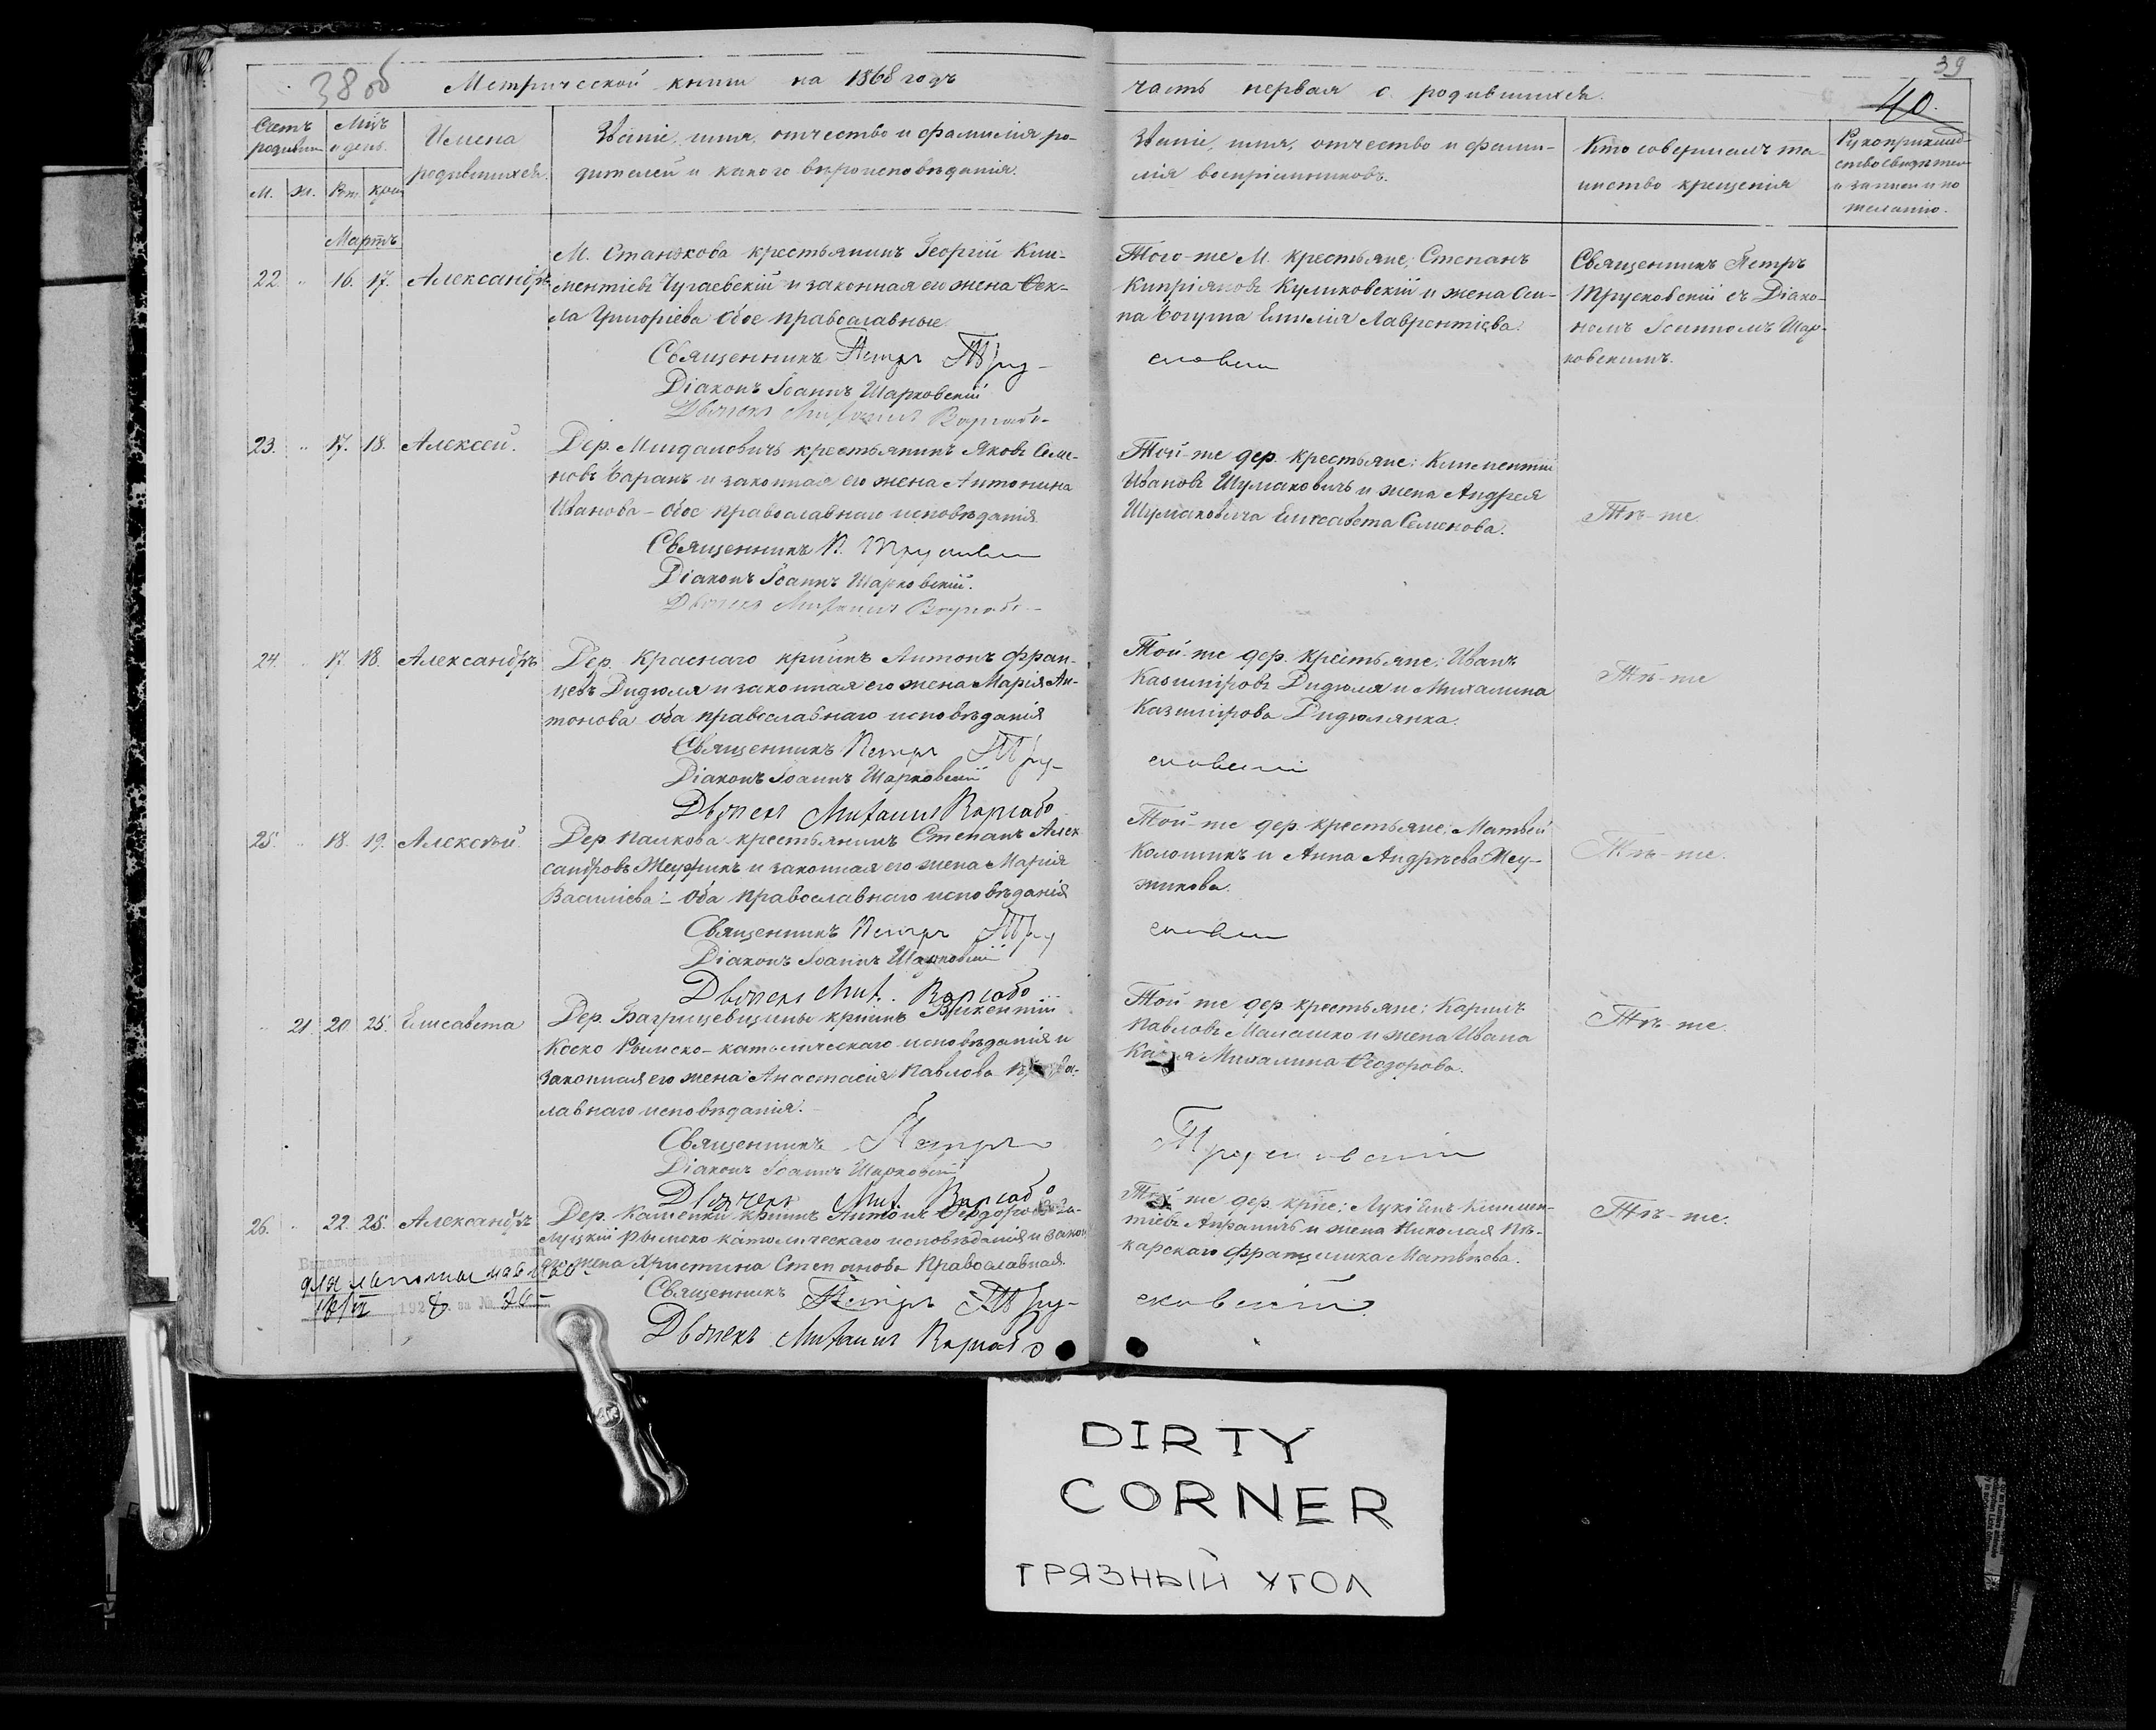 38 об
Метрической книги на 1868 годъ
часть первая о родившихся.
39
40.
Счетъ родивши
М. ж.
Мцъ и день.
Рож. крещ
Имена родившихся.
Званіе, имя, отчество и фамилія ро-
дителей и какого вѣроисповѣданія.
Званіе, имя, отчество и фами-
лія воспріемниковъ.
Кто совершалъ та-
инство крещенія
Рукоприклад-
ство свидѣтел
о записи по
желанію.
Мартъ
22. „ 16. 17. Александръ
М. Станькова крестьянинъ Георгій Кли-
ментіевъ Чугаевскій и законная его жена Ѳек-
ла Григоріева обое православные
Священникъ Петръ Тру-
сковскій
Діаконъ Іоаннъ Шарковскій
Дьячекъ Михаилъ
Того-же М. крестьяне: Степанъ
Кипріяновъ Куликовскій и жена Оси-
па Богуша Емилія Лаврентіева.
Священникъ Петръ
Трусковскій съ Діако-
номъ Іоанномъ Шар-
ковскимъ.
23. „ 17. 18. Алексей.
Дер. крестьянинъ Яковъ Семе-
новъ Баранъ и законная его жена Антонина
Иванова – обое православнаго исповѣданія.
Священникъ П. Трусковскій
Діаконъ Іоаннъ Шарковскій.
Дьячекъ Михаилъ
Той-же дер. крестьяне: Климентій
Ивановъ Шумаковичъ и жена Андрея
Шумаковича Елисавета Семенова.
Тѣ-же.
24. „ 17. 18. Александръ
Дер. Краснаго кр-нинъ Антонъ Фран-
цевъ Дидюля и законная его жена Марія Ан-
тонова оба православнаго исповѣданія
Священникъ Петръ Тру-
сковскій
Діаконъ Іоаннъ Шарковскій
Дьячекъ Михаилъ
Той-же дер. крестьяне: Иванъ
Казиміровъ Дидюля и Михалина
Казимірова Дидюлянка.
Тѣ-же
25. „ 18. 19. Алексѣй.
Дер. крестьянинъ Степанъ Алек
сандровъ и законная его жена Марія
Василіева – оба православнаго исповѣданія
Священникъ Петръ Тру
сковскій
Діаконъ Іоаннъ Шарковскій
Дьячекъ Мих.
Той-же дер. крестьяне: Матвѣй
и Анна Андреева
Тѣ-же.
„ 21. 20. 25. Елисавета
Дер. Багрицевщины кр-нинъ Викентій
Коско Римско-католическаго исповѣданія и
законная его жена Анастасія Павлова
лавнаго исповѣданія.
Священникъ Петръ
Трусковскій
Діаконъ Іоаннъ Шарковскій
Дьячекъ Мих.
Той же дер. крестьяне: Карпъ
Павловъ Малашко и жена Ивана
Михалина Ѳеодорова.
Тѣ-же.
26. „ 22. 25. Александръ
Дер. Каменки кр-нинъ Антонъ Ѳедоровъ
луцкій римско католическаго исповѣданія и закон
его жена Христина Степанова Православная.
Священникъ Петръ Тру-
сковскій.
Дьячекъ Михаилъ
Той же дер. кр-не: Лукіянъ Климен-
тіевъ и жена Николая Пе-
карскаго Францишка Матвѣева.
Тѣ-же.
192 за №
DIRTY
CORNER
ГРЯЗНЫЙ УГОЛ